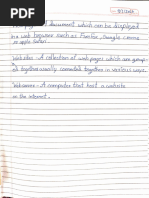 7/1/2025
Web page A document which can be displayed
in a web browser such as Firefox, Google crome
or apple safari.
Web sites - A collection of web pages which are group-
ed together usually connected together in various ways.
Web server - A computer that host a website
on the internet.